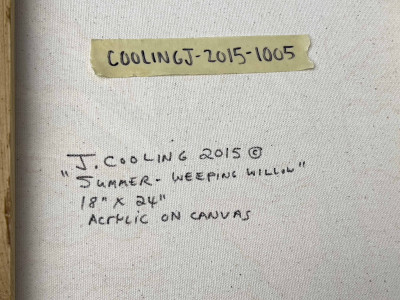 COOLINGJ-2015-1005
J. COOLING 2015 ©
"SUMMER- WEEPING WILLOW"
18" X 24"
ACRYLIC ON CANVAS